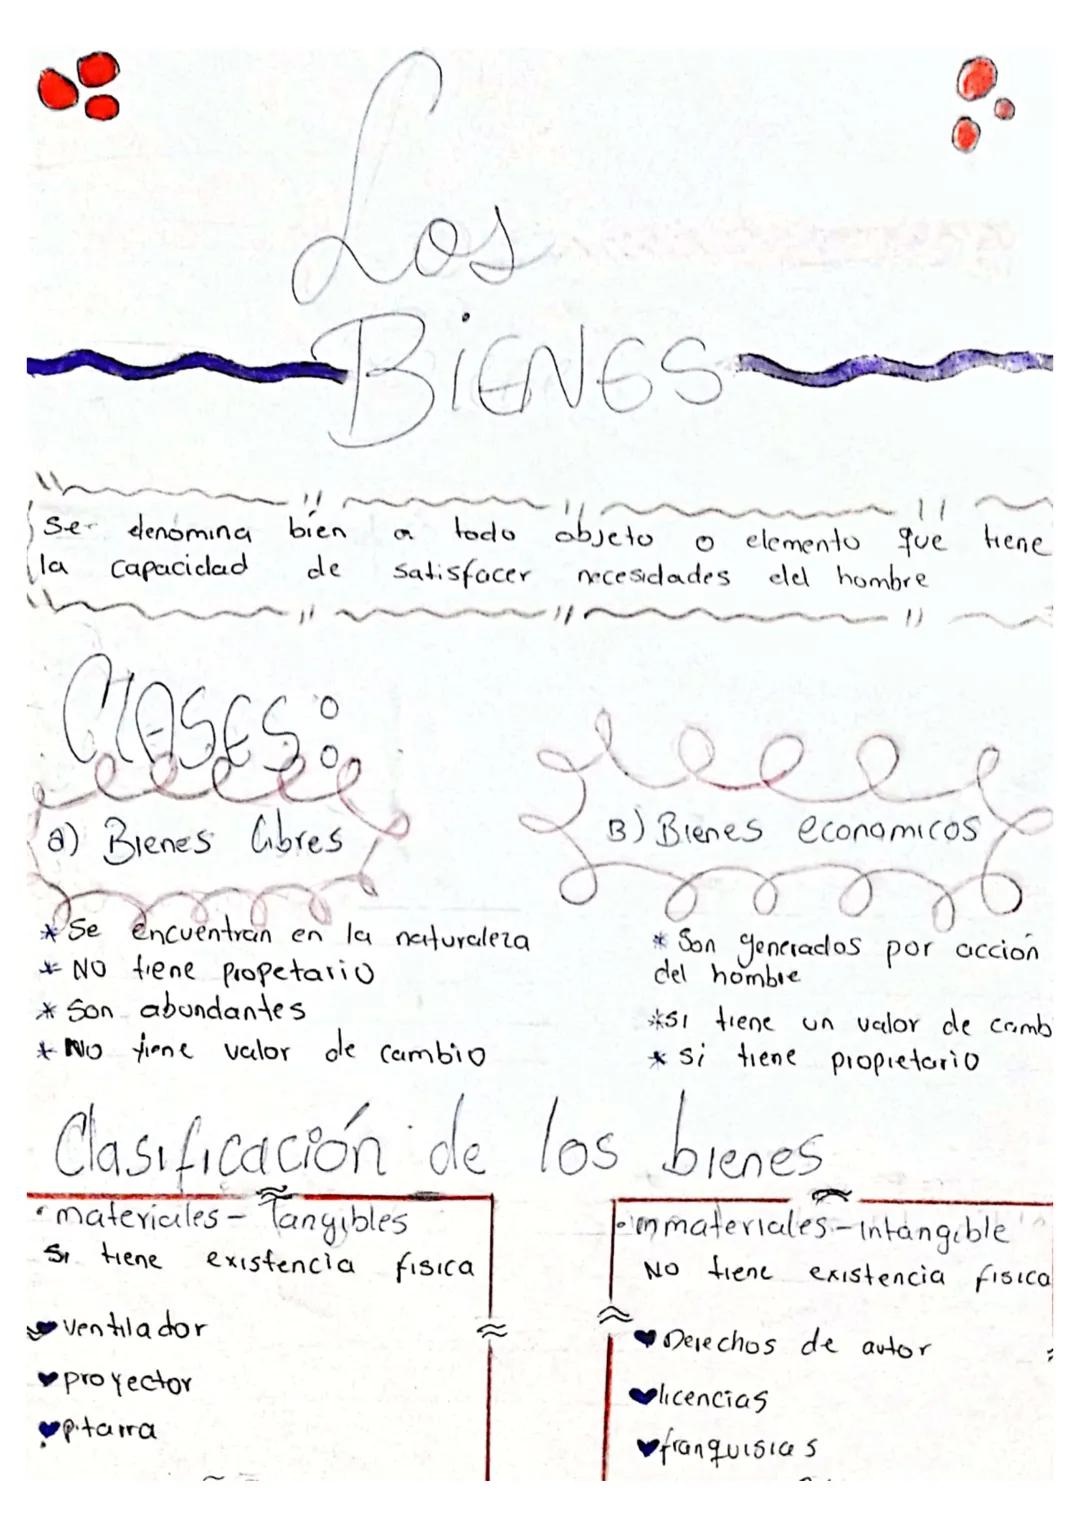 Los
BiENES
Se denomina bien a todo objeto o elemento que tiene
la capacidad de satisfacer necesidades del hombre
ClASES:
a) Bienes libres
B) Bienes economicos
* Se encuentran en la naturaleza
* NO tiene propetario
* Son abundantes
* NO tiene valor de cambio
* Son generados por acción
del hombre
* SI tiene un valor de camb
* Si tiene propietario
Clasificación de los bienes
• materiales - Tangibles
SI tiene existencia fisica
ventilador
proyector
pitarra
• inmateriales - Intangible
NO tiene existencia fisica
Derechos de autor
licencias
franquisias